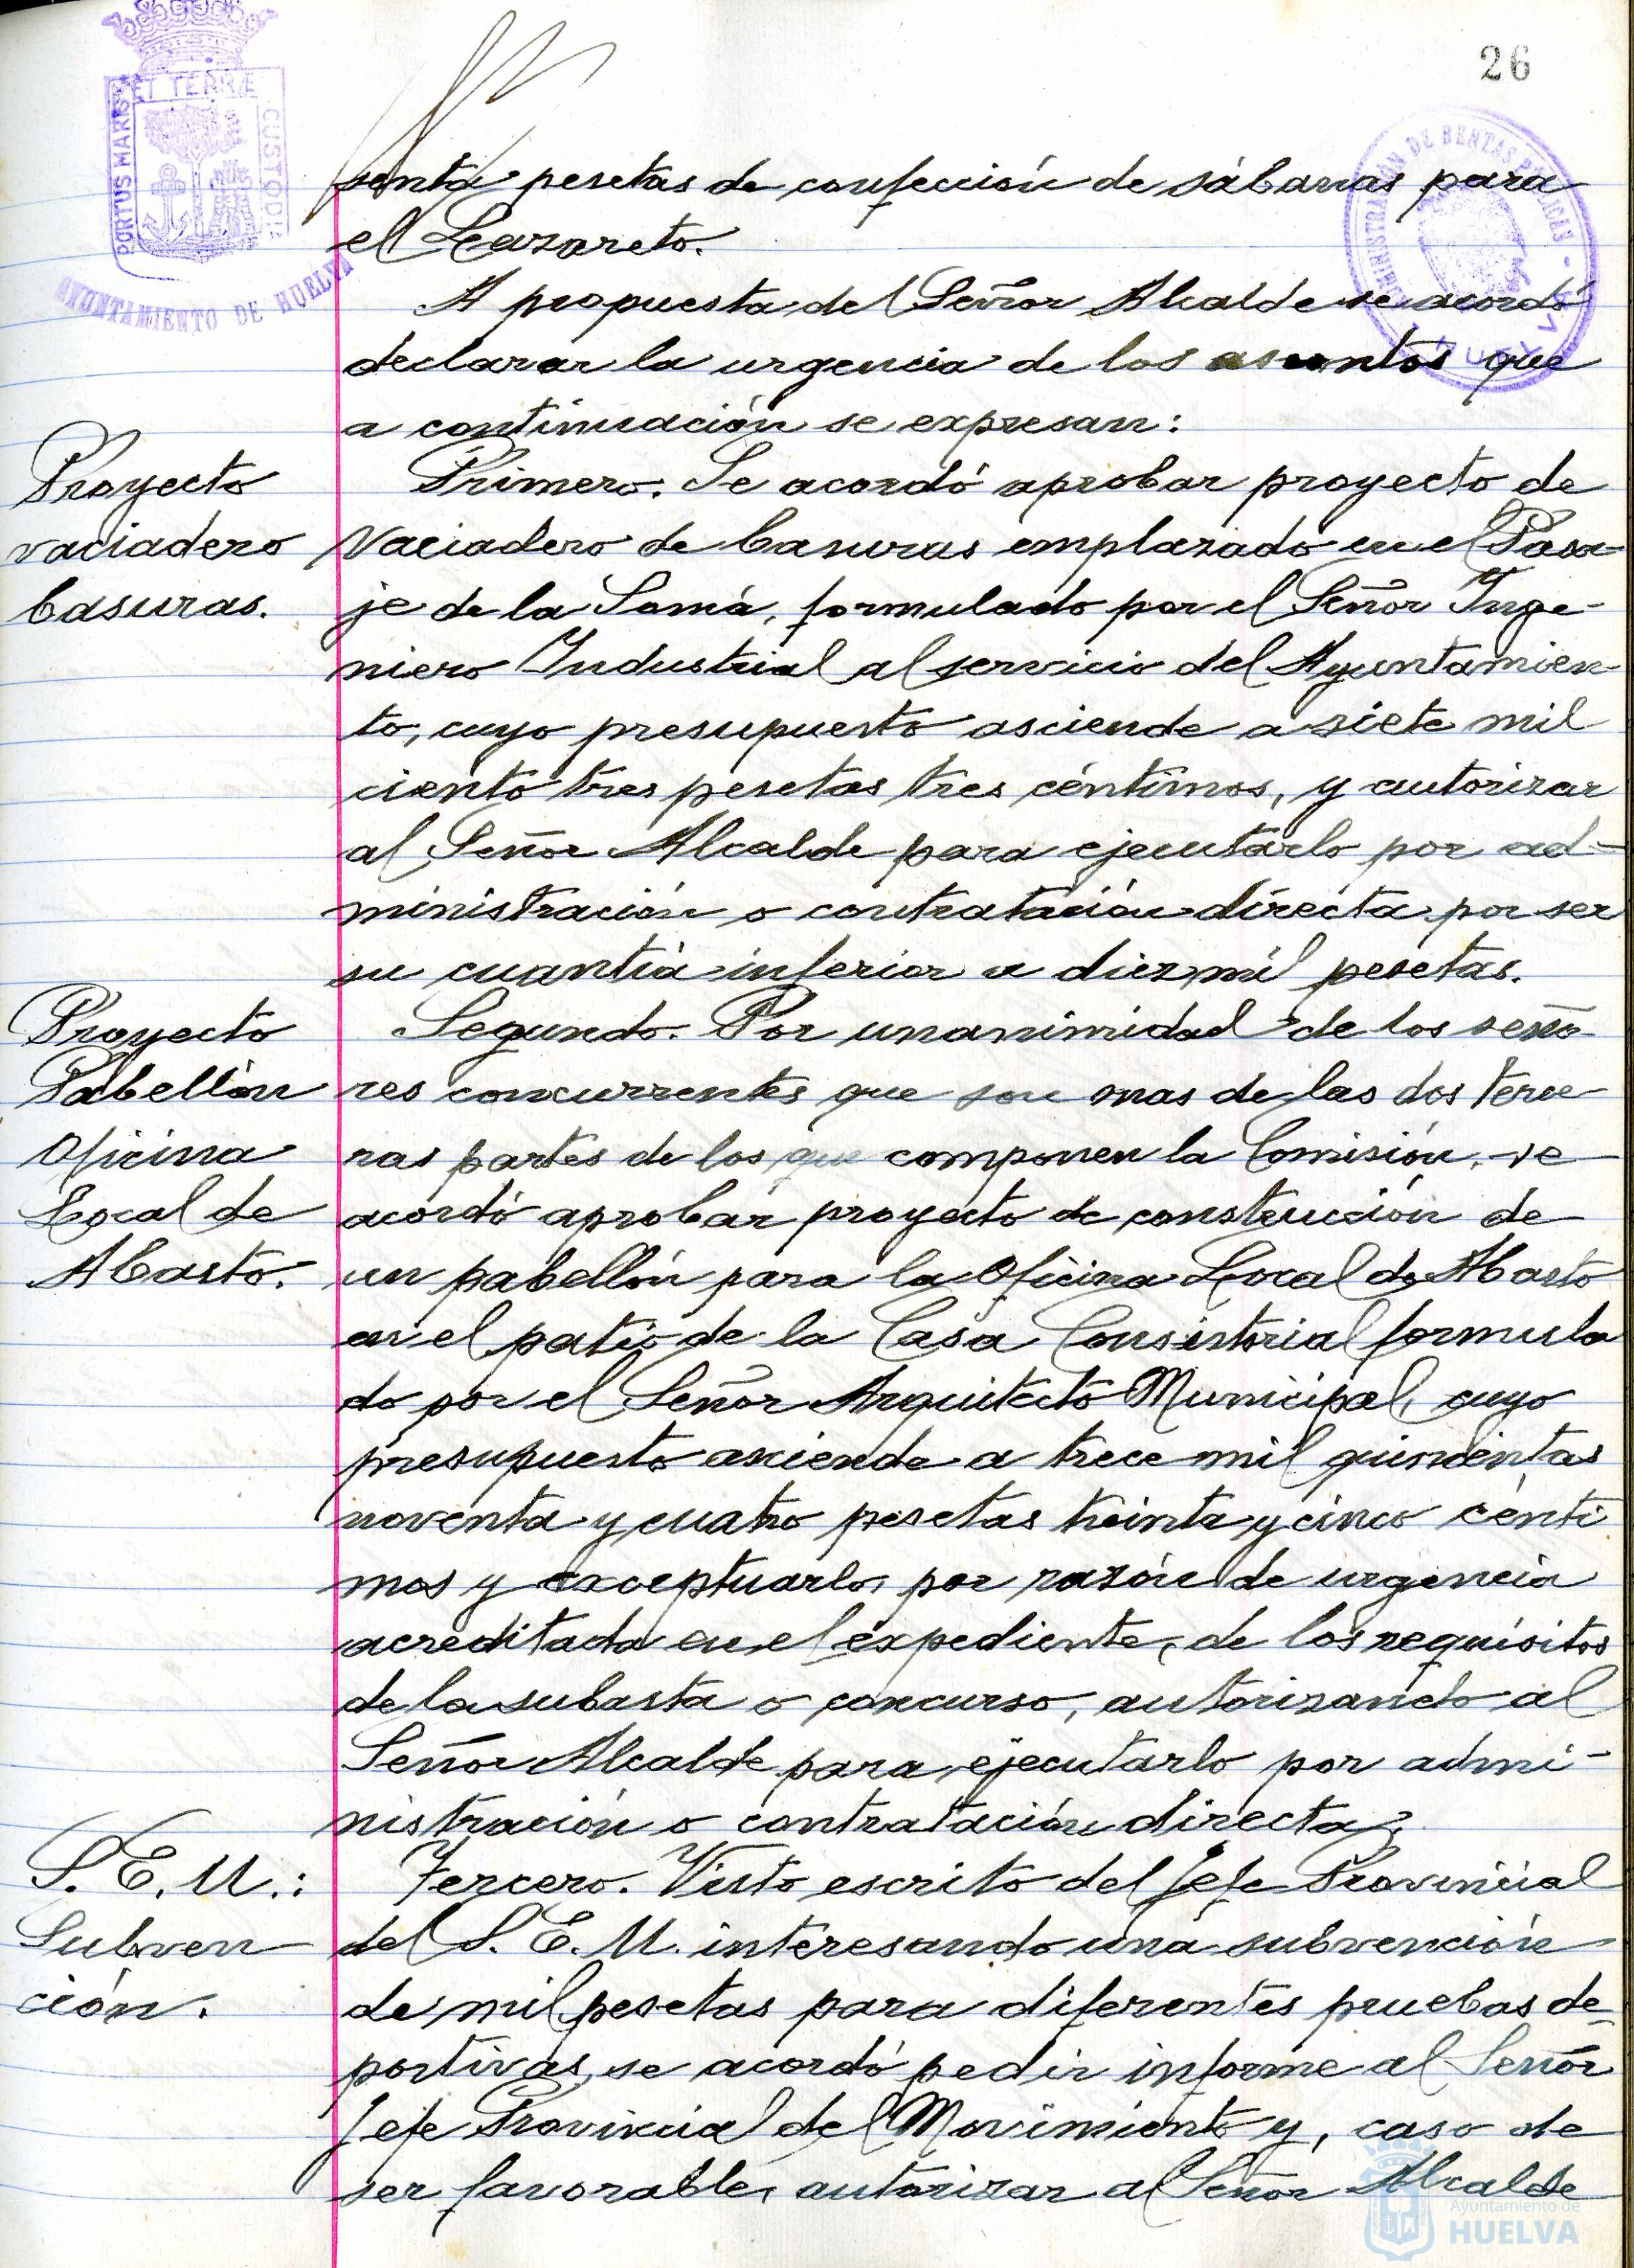 26
PORTUS MARIS ET TERRÆ CUSTODIA
AYUNTAMIENTO DE HUELVA
ADMINISTRACIÓN DE RENTAS PÚBLICAS - HUELVA
senta pesetas de confección de sábanas para
el Lazareto.
A propuesta del Señor Alcalde se acordó
declarar la urgencia de los asuntos que
a continuación se expresan:
Proyecto
vaciadero
basuras.
Primero. Se acordó aprobar proyecto de
Vaciadero de basuras emplazado en el Pasa-
je de la Somá, formulado por el Señor Inge-
niero Industrial al servicio del Ayuntamien-
to, cuyo presupuesto asciende a siete mil
ciento tres pesetas tres céntimos, y autorizar
al Señor Alcalde para ejecutarlo por ad-
ministración o contratación directa por ser
su cuantía inferior a diez mil pesetas.
Proyecto
Pabellón
Oficina
Local de
Abasto.
Segundo. Por unanimidad de los seño
res concurrentes que son mas de las dos terce
ras partes de los que componen la Comisión, se
acordó aprobar proyecto de construcción de
un pabellón para la Oficina Local de Abasto
en el patio de la Casa Consistorial formula
do por el Señor Arquitecto Municipal, cuyo
presupuesto asciende a trece mil quinientas
noventa y cuatro pesetas treinta y cinco cénti
mos y exceptuarlo, por razón de urgencia
acreditada en el expediente, de los requisitos
de la subasta o concurso, autorizando al
Señor Alcalde para ejecutarlo por admi-
nistración o contratación directa.
S. E. U.:
Subven
ción.
Tercero. Visto escrito del Jefe Provincial
del S. E. U. interesando una subvención
de mil pesetas para diferentes pruebas de-
portivas, se acordó pedir informe al Señor
Jefe Provincial del Movimiento y, caso de
ser favorable, autorizar al Señor Alcalde
Ayuntamiento de
HUELVA